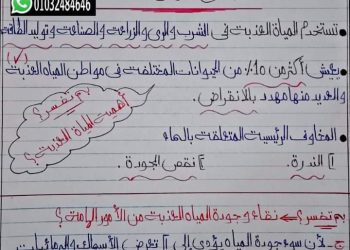 01032484646
• تستخدم المياه العذبة فى الشرب والرى والزراعة والصناعة وتوليد الطاقة
• يعيش أكثر من 10% من الحيوانات المختلفة فى مواطن المياه العذبة (✓)
والعديد منها مهدد بالانقراض.
بم تفسر؟
أهمية المياه العذبة؟
• المخاوف الرئيسية المتعلقة بالماء
1] الندرة. 2] نقص الجودة.
بم تفسر؟ نقاء وجودة المياه العذبة من الأمور الهامة؟
ج- لأن سوء جودة المياه يؤدى إلى تعرض الأسماك والبرمائيات